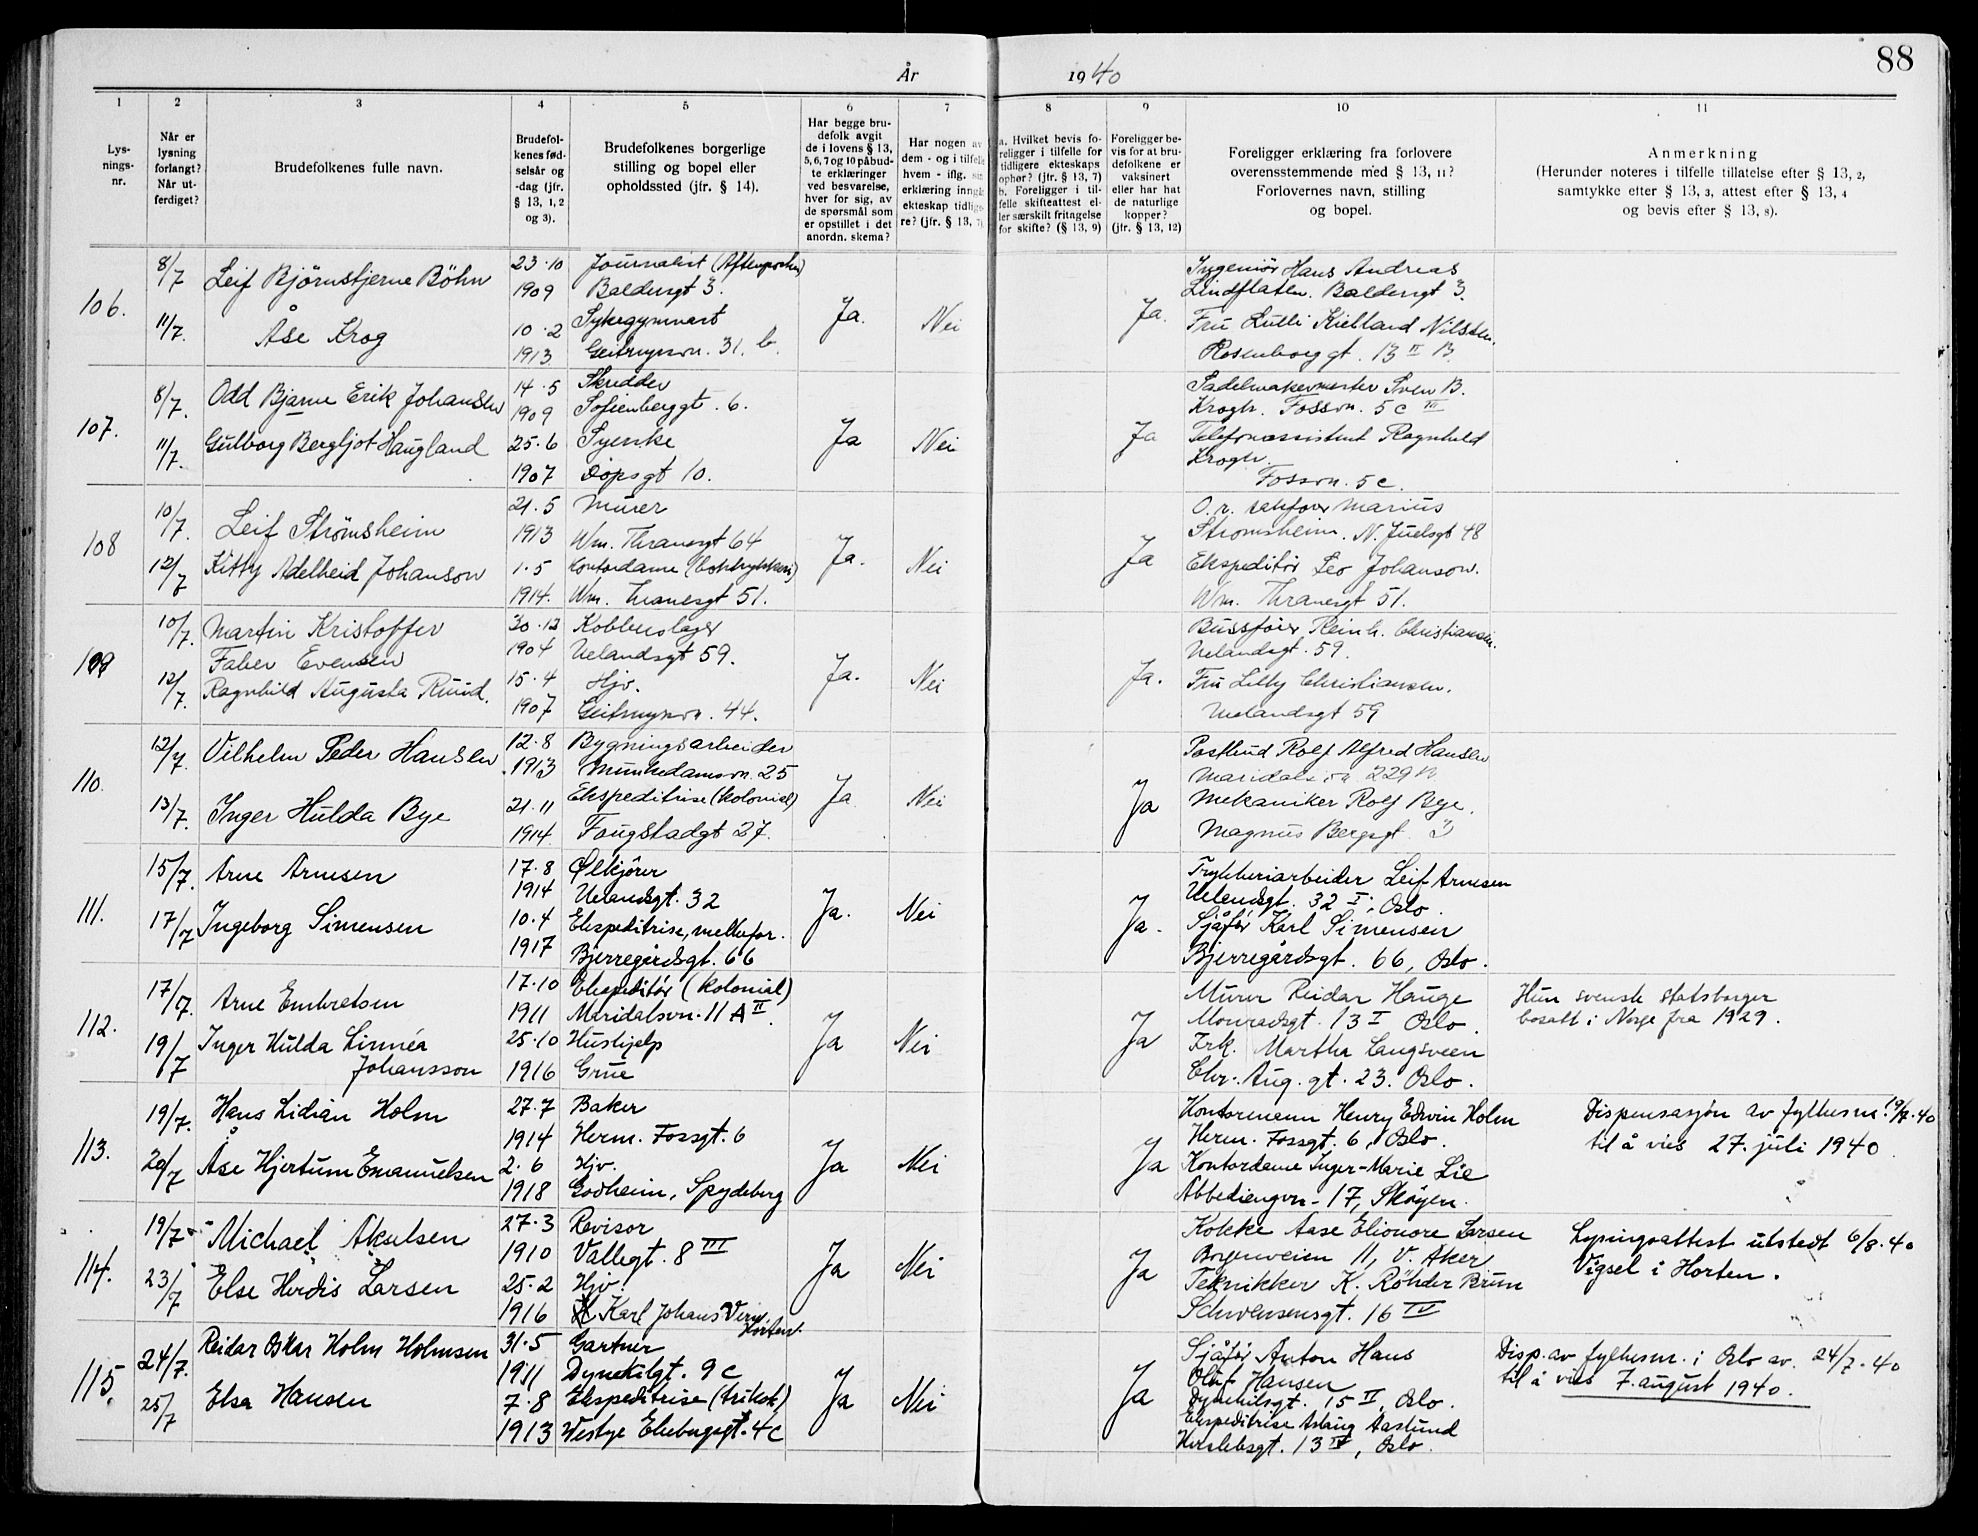 88
År 1940
1 2 3 4 5 6 7 8 9 10 11
Lys-
nings-
nr.
Når er
lysning
forlangt?
Når ut-
ferdiget?
Brudefolkenes fulle navn.
Brudefol-
kenes fød-
selsår og
-dag (jfr.
§ 13, 1, 2
og 3).
Brudefolkenes borgerlige
stilling og bopel eller
opholdssted (jfr. § 14).
Har begge bru-
defolk avgit
de i lovens § 13,
5, 6, 7 og 10 påbud-
te erklæringer
ved besvarelse,
hver for sig, av
de spørsmål som
er opstillet i det
anordn. skema?
Har nogen av
dem - og i tilfelle
hvem - iflg. sin
erklæring inngå
ekteskap tidlige-
re? (jfr. § 13, 7)
a. Hvilket bevis fo-
religger i tilfelle for
tidligere ekteskaps
ophør? (jfr. § 13, 7)
b. Foreligger i til-
felle skifteattest el-
ler særskilt fritagelse
for skifte? (§ 13, 9)
Foreligger be-
vis for at bru-
defolkene er
vaksinert
eller har hat
de naturlige
kopper?
(jfr. § 13, 12)
Foreligger erklæring fra forlovere
overensstemmende med § 13, 11?
Forlovernes navn, stilling
og bopel.
Anmerkning
(Herunder noteres i tilfelle tillatelse efter § 13, 2,
samtykke efter § 13, 3, attest efter § 13, 4
og bevis efter § 13, 8).
106.
8/7
11/7.
Leif Bjørnstjerne Böhn
Åse Krog
23.10
1909
10.2
1913
Journalist (Aftenposten)
Baldersgt 3.
Sykegymnast
Geitmyrsvn. 31. b.
Ja.
Nei
Ja.
Ingeniør Hans Andreas
Lindflaten. Baldersgt 3.
Fru Lulli Kielland Nilsen.
Rosenborggt. 13 II B.
107.
8/7.
11/7.
Odd Bjarne Erik Johansen
Gulborg Bergljot Haugland
14.5
1909
25.6
1907
Skredder
Sofienberggt. 6.
Syerske
Döpsgt 10.
Ja
Nei
Ja
Sadelmakermester Sven B.
Krogh. Fossvn. 5c III
Telefonassistent Ragnhild
Krogh.
Fossvn. 5c.
108
10/7.
12/7
Leif Strömsheim
Kitty Adelheid Johanson
21.5
1913
1.5
1914.
Murer
Wm. Thranesgt 64
Kontordame (boktrykkeri)
Wm. Thranesgt 51.
Ja.
Nei
Ja
O.r. sakfører Marius
Strömsheim. N. Juelsgt 48
Ekspeditör Leo Johanson.
Wm. Thranesgt 51.
109
10/7.
12/7.
Martin Kristoffer
Faber Evensen
Ragnhild Augusta Ruud.
30.12
1904
15.4
1907
Kobberslager
Uelandsgt 59.
Hjv.
Geitmyrsvn. 44.
Ja.
Nei
Ja.
Bussförer Reinh. Christiansen.
Uelandsgt. 59.
Fru Lilly Christiansen.
Uelandsgt 59
110.
12/7.
13/7.
Vilhelm Peder Hansen
Inger Hulda Bye
12.8
1913
21.11
1914.
Bygningsarbeider
Munkedamsvn. 25
Ekspeditrise (kolonial)
Fougstadgt 27.
Ja
Nei
Ja
Postbud Rolf Alfred Hansen
Maridalsvn 229
Mekaniker Rolf Bye.
Magnus Bergsgt. 3
111.
15/7.
17/7
Arne Arnesen
Ingeborg Simensen
17.8
1914
10.4
1917
Ölkjörer
Uelandsgt. 32
Ekspeditrise, melkefor.
Bjerregårdsgt. 66
Ja.
Nei
Ja.
Trykkeriarbeider Leif Arnesen
Uelandsgt. 32 I, Oslo.
Sjåför Karl Simensen
Bjerregårdsgt. 66, Oslo.
112.
17/7.
19/7
Arne Embretsen
Inger Hulda Linnéa
Johansson
17.10
1911
25.10
1916
Ekspeditör (kolonial)
Maridalsvn. 11 A II
Hushjelp
Grue
Ja
Nei
Ja
Murer Reidar Hauge
Monradsgt. 13 I Oslo.
Frk. Martha Langsveen
Chr. Aug. gt. 23. Oslo.
Hun svensk statsborger
bosatt i Norge fra 1929.
113.
19/7.
20/7
Hans Lidian Holm
Åse Hjertum Emanuelsen
27.7
1914
2.6
1918
Baker
Herm. Fossgt. 6
Hjv.
Godheim, Spydeberg
Ja
Nei
Ja
Kontormann Henry Edwin Holm
Herm. Fossgt. 6, Oslo.
Kontordame Inger-Marie Lie
Abbediengvn. 17, Skøyen.
Dispensasjon av fylkesm. 19/7.40
til å vies 27. juli 1940.
114.
19/7
23/7
Michael Akselsen
Else Herdis Larsen
27.3
1910
25.2
1916
Revisor
Vallegt. 8 III
Hjv.
Karl Johans Vern
Horten.
Ja
Nei
Ja
Kokke Aase Elionore Larsen
Borgenveien 11, V. Aker
Teknikker K. Röhder Brun
Schwensensgt. 16 IV
Lysningsattest utstedt 6/8.40
Vigsel i Horten.
115.
24/7.
25/7
Reidar Oskar Holm Holmsen
Elsa Hansen
31.5
1911
7.8
1913
Gartner
Dynekilgt. 9 c
Ekspeditrise (trikot.)
Westye Egebergsgt. 4c
Ja
Nei
Ja
Sjåför Anton Hans
Olaf Hansen
Dynekilsgt. 15 II, Oslo.
Ekspeditrise Aslaug Aaslund
Herslebsgt. 13 IV, Oslo.
Disp. av fylkesm. i Oslo av. 24/7.40
til å vies 7. august 1940.